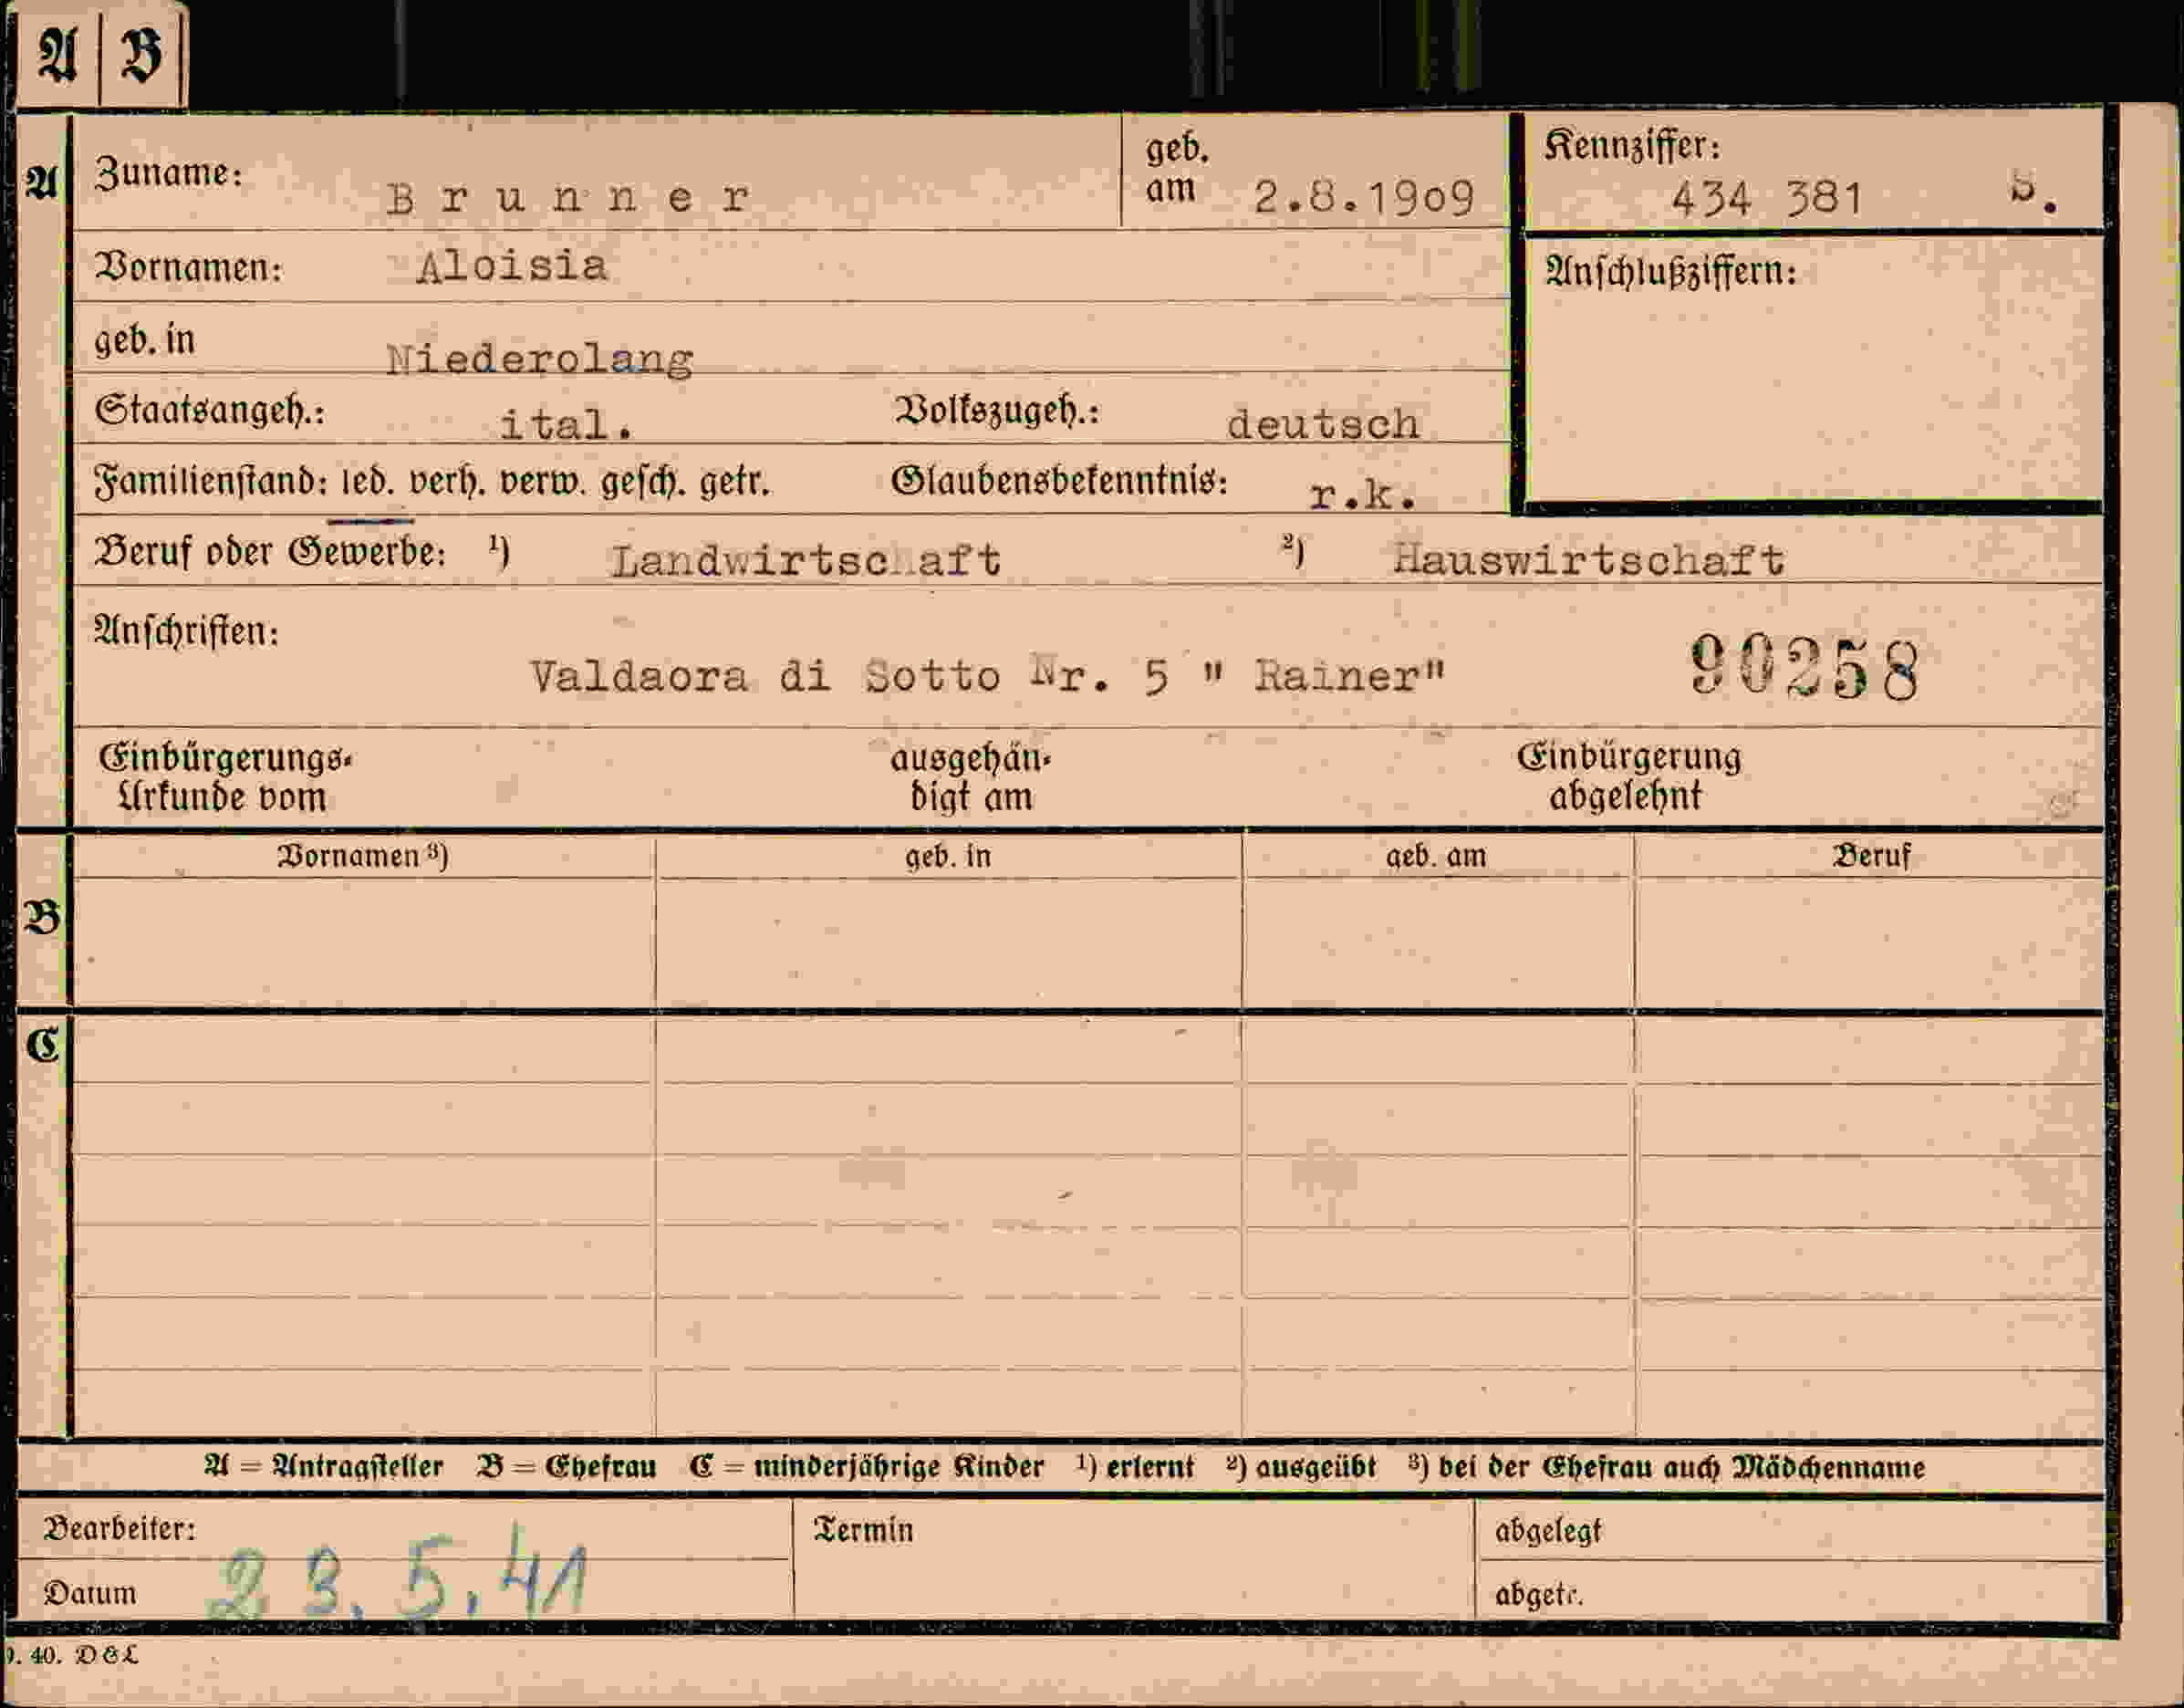 A B
A Zuname: Brunner geb. am 2.8.1909 Kennziffer: 434 381
Vornamen: Aloisia Anschlußziffern:
geb. in Niederolang
Staatsangeh.: ital. Volkszugeh.: deutsch
Familienstand: led. verh. verw. gesch. getr. Glaubensbekenntnis: r.k.
Beruf oder Gewerbe: ¹) Landwirtschaft ²) Hauswirtschaft
Anschriften:
Valdaora di Sotto Nr. 5 " Rainer" 90258
Einbürgerungs- ausgehän- Einbürgerung
Urkunde vom digt am abgelehnt
Vornamen ³) geb. in geb. am Beruf
B
C
A = Antragsteller B = Ehefrau C = minderjährige Kinder ¹) erlernt ²) ausgeübt ³) bei der Ehefrau auch Mädchenname
Bearbeiter: Termin abgelegt
Datum 23.5.41 abgetr.
40. D&L